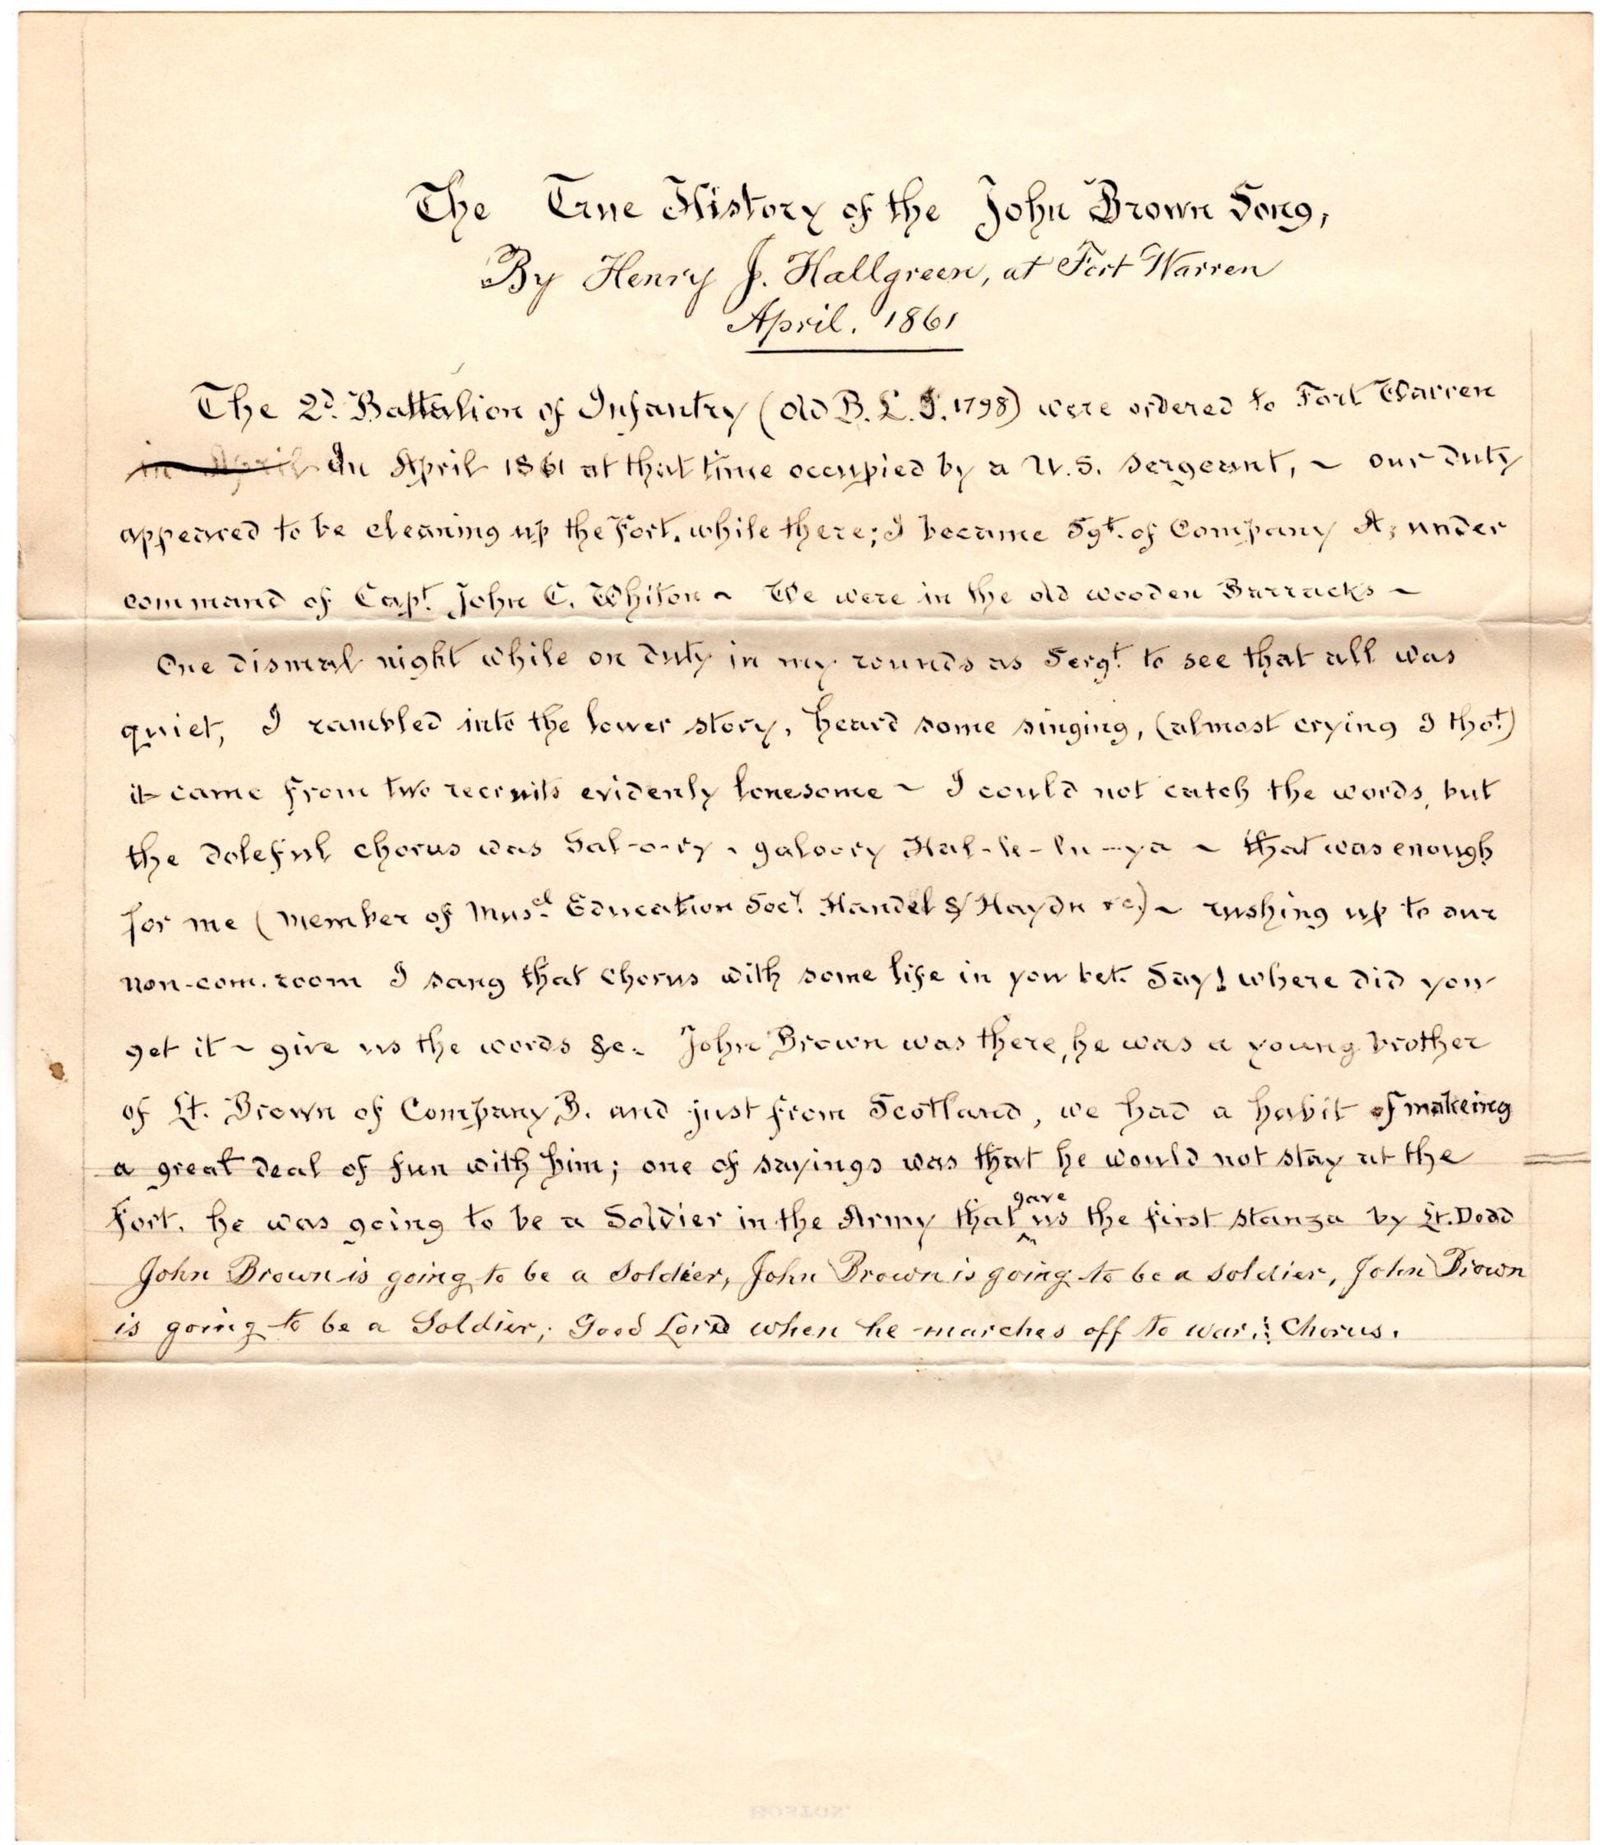 The True History of the John Brown Song,
By Henry J. Hallgreen, at Fort Warren
April. 1861
The 2d. Battalion of Infantry (old B. L. I. 1798) were ordered to Fort Warren
in April In April 1861 at that time occupied by a U.S. Sergeant, ~ our duty
appeared to be cleaning up the Fort. while there; I became Sgt. of Company A; under
command of Capt. John C. Whiton ~ We were in the old wooden Barracks ~
One dismal night while on duty in my rounds as Sergt. to see that all was
quiet, I rambled into the lower story, heard some singing, (almost crying I thot.)
it came from two recruits evidenly lonesome ~ I could not catch the words, but
the doleful chorus was Sal-o-ry, galoory Hal-le-lu-ya ~ that was enough
for me (member of Musel. Education Socy. Handel & Haydn &c) ~ rushing up to our
non-com. room I sang that chorus with some life in you bet. Say! where did you
get it ~ give us the words &c. John Brown was there, he was a young brother
of Lt. Brown of Company B. and just from Scotland, we had a habit of makeing
a great deal of fun with him; one of sayings was that he would not stay at the
Fort, he was going to be a Soldier in the Army that gave us the first stanza by Lt. Dodd
John Brown is going to be a Soldier, John Brown is going to be a soldier, John Brown
is going to be a Soldier; Good Lord when he marches off to war. Chorus.